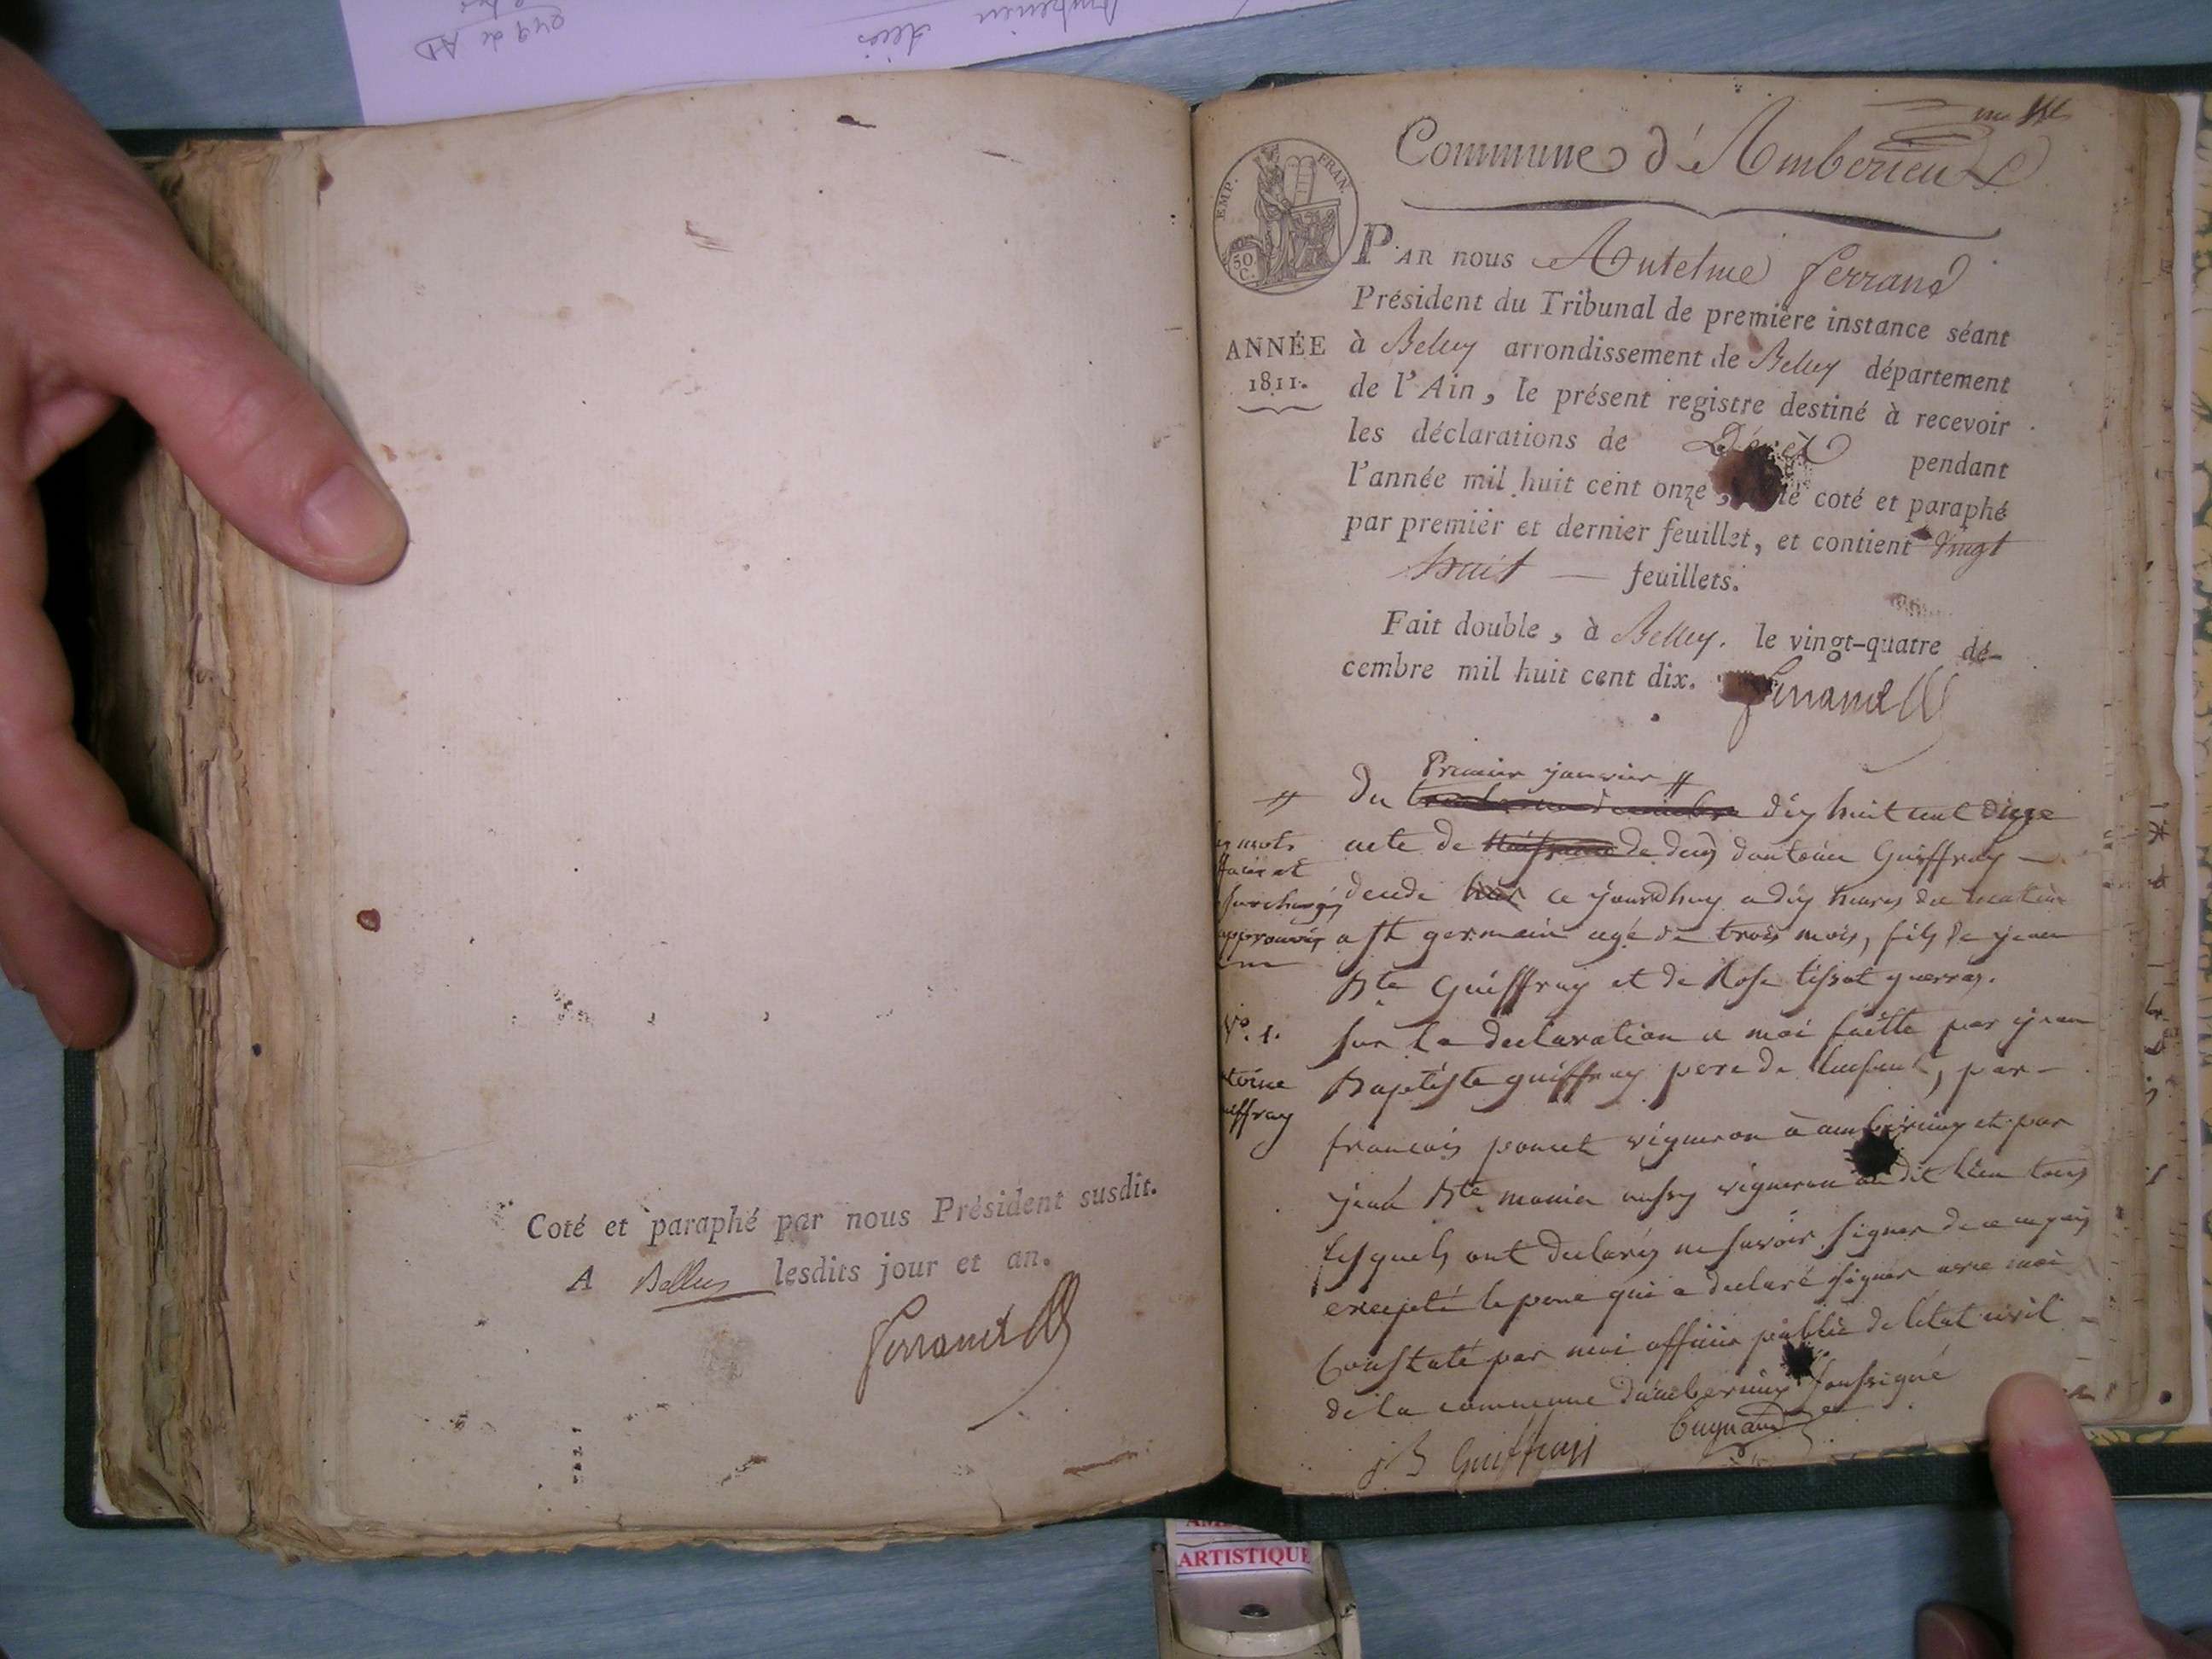 Coté et paraphé par nous Président susdit.
A Belley lesdits jour et an.
Ferrand
Commune d'Amberieux
EMP. FRAN.
50 C.
ANNÉE
1811.
PAR nous Antelme ferrand
Président du Tribunal de première instance séant
à Belley arrondissement de Belley département
de l'Ain, le présent registre destiné à recevoir
les déclarations de Décès pendant
l'année mil huit cent onze, coté et paraphé
par premier et dernier feuillet, et contient vingt
huit — feuillets.
Fait double, à Belley. le vingt-quatre dé-
cembre mil huit cent dix. Ferrand
Premier janvier //
// Du dix huit cent onze
mots
surchargés
approuvés
acte de de deces dantoine Guiffray —
decede hier ce jourdhuy a dix heures du matin
a St germain agé de trois mois, fils de jean
Bte Guiffray et de Rose tissot guerraz.
N°. 1.
toine
uiffray
sur la declaration a moi faitte par jean
Baptiste guiffray pere de lenfant, par —
francois poncet vigneron à amberieux et par
jean Bte monier aussy vigneron au dit lieu tous
lesquels ont declarés ne savoir signer de ce requis
excepté le pere qui a declaré signer avec moi
Constaté par moi officier public de letat civil
de la commune damberieux soussigné
JB Guiffray
ARTISTIQUE